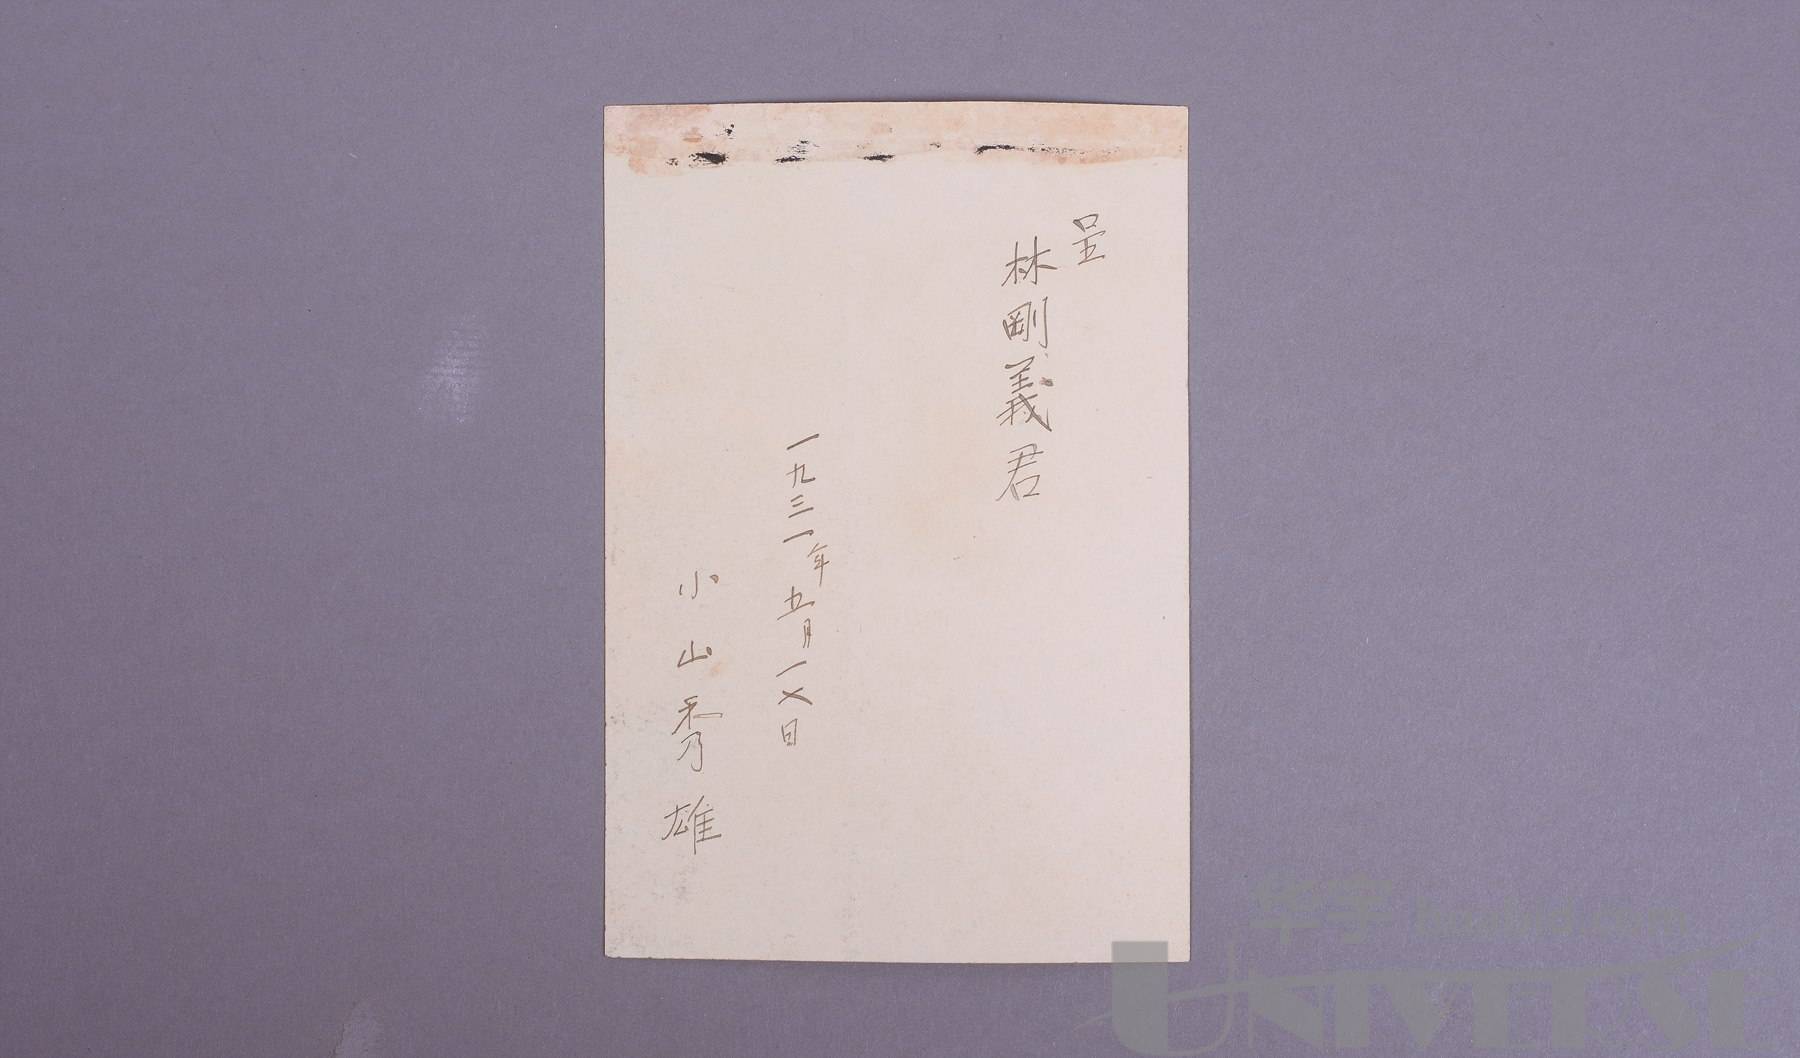 呈
林剛義君
一九三一年五月一七日
小山秀雄
华宇
UNIVERSE